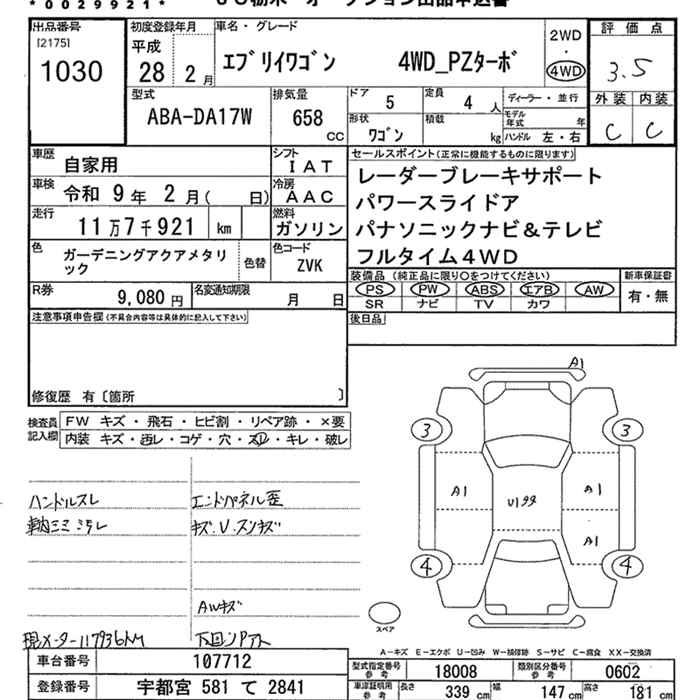 *0029921*
出品番号
[2175]
1030
初度登録年月
平成
28 2月
車名・グレード
エブリイワゴン 4WD_PZターボ
2WD
・
4WD
評価点
3.5
外装 内装
C C
型式
ABA-DA17W
排気量
658
CC
ドア 5
定員 4 人
ディーラー・並行
形状 ワゴン
積載 kg
モデル年式 年
ハンドル 左・右
車歴 自家用
シフト IAT
車検 令和 9年 2月( 日)
冷房 AAC
走行 11万7千921 km
燃料 ガソリン
色 ガーデニングアクアメタリ
ック
色替
色コード ZVK
R券 9,080円
名変通知期限 月 日
セールスポイント(正常に機能するものに限ります)
レーダーブレーキサポート
パワースライドア
パナソニックナビ&テレビ
フルタイム4WD
装備品 (純正品に限り○をつけてください)
新車保証書
PS PW ABS エアB AW
SR ナビ TV カワ
有・無
後日品
注意事項申告欄(不具合内容等は具体的に記入して下さい)
修復歴 有〔箇所 〕
検査員
記入欄
FW キズ・飛石・ヒビ割・リペア跡・×要
内装 キズ・汚レ・コゲ・穴・スレ・キレ・破レ
ハンドルスレ
エンドパネル歪
キズ.U.スンキズ
AWキズ
現メーター117936km
A1
3 3
A1 A1
A1
4 4
スペア
A-キズ E-エクボ U-凹み W-補修跡 S-サビ C-腐食 XX-交換済
車台番号 107712
登録番号 宇都宮 581 て 2841
型式指定番号
参考
18008
類別区分番号
参考
0602
車庫証明用
参考
長さ 339 cm 幅 147 cm 高さ 181 cm